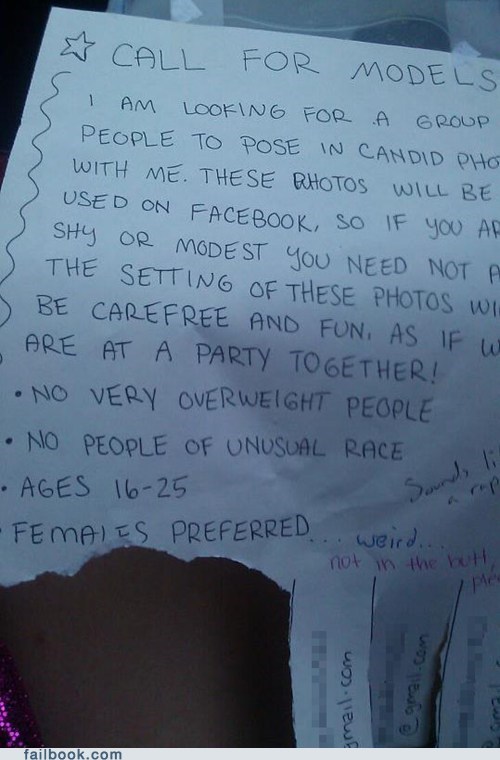 CALL FOR MODELS
I AM LOOKING FOR A GROUP
PEOPLE TO POSE IN CANDID PHO
WITH ME. THESE PHOTOS WILL BE
USED ON FACEBOOK, SO IF YOU AR
SHY OR MODEST YOU NEED NOT A
THE SETTING OF THESE PHOTOS WI
BE CAREFREE AND FUN, AS IF W
ARE AT A PARTY TOGETHER!
• NO VERY OVERWEIGHT PEOPLE
• NO PEOPLE OF UNUSUAL RACE
• AGES 16-25
Sounds li
a rap
• FEMALES PREFERRED... weird...
not in the butt,
plea
gmail.com
@gmail.com
gmail
failbook.com